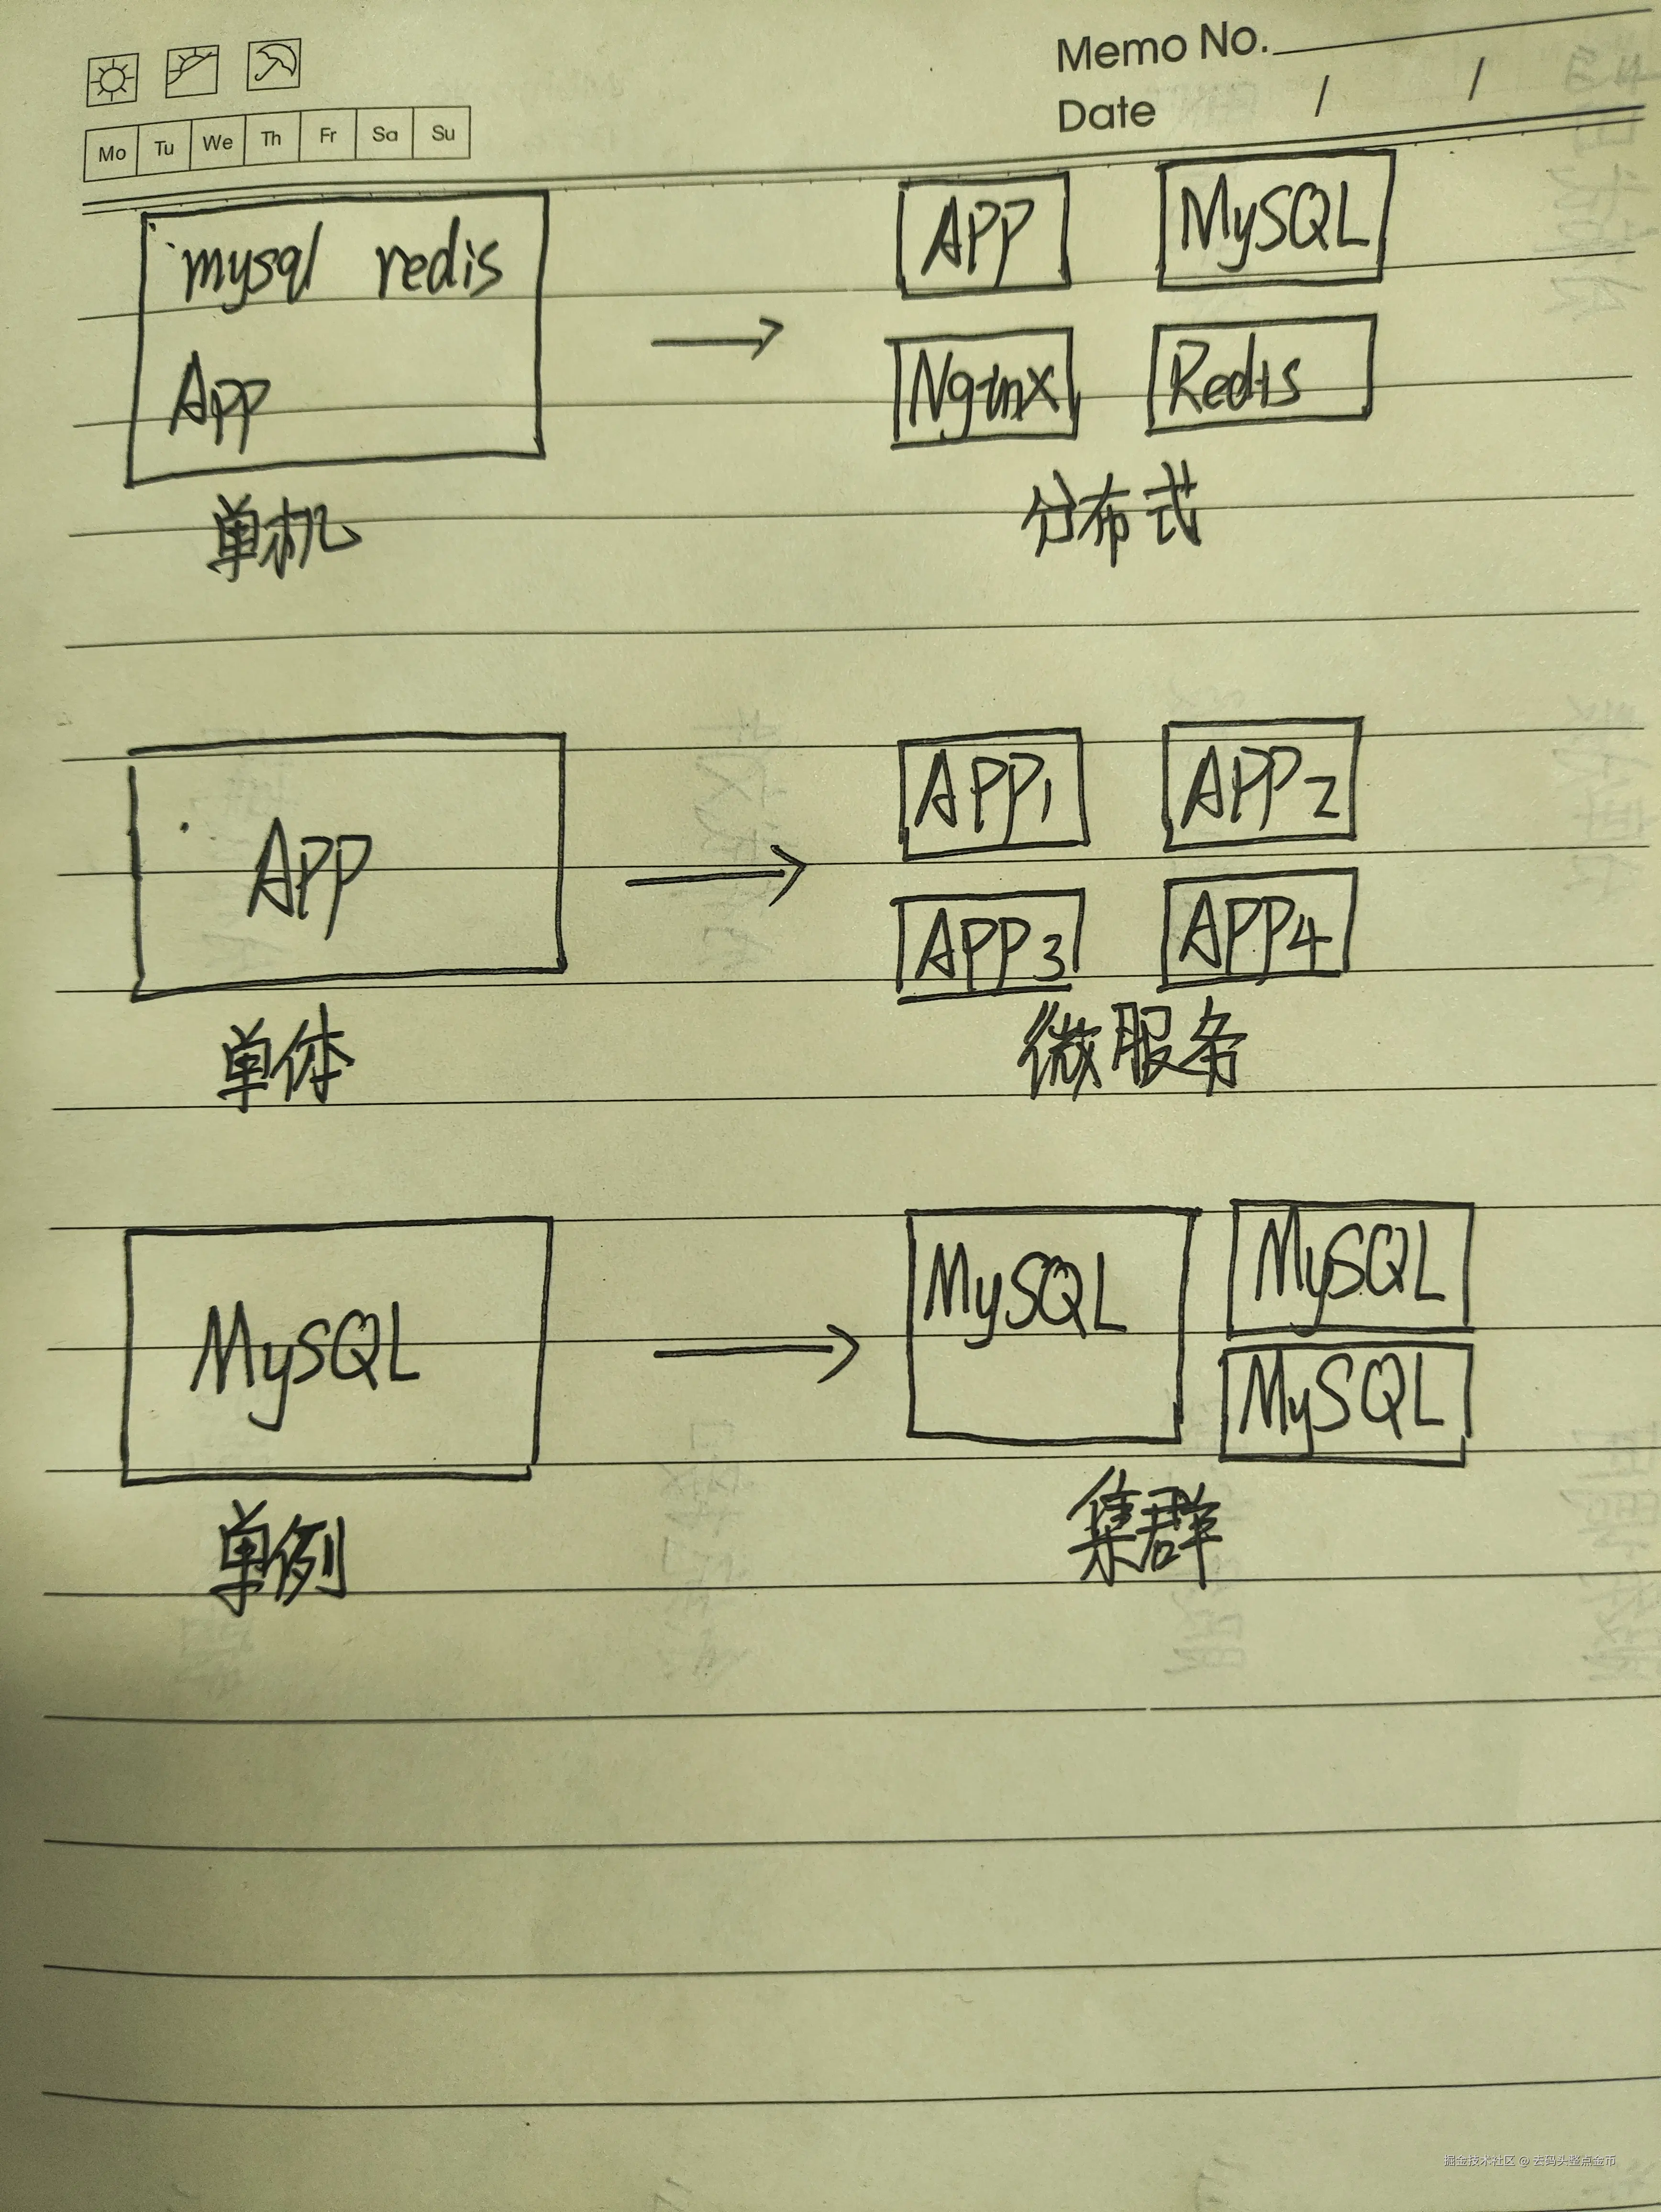 Memo No.
Date / /
Mo Tu We Th Fr Sa Su
mysql redis
App
单机
APP MySQL
Nginx Redis
分布式
APP
单体
APP1 APP2
APP3 APP4
微服务
MySQL
单例
MySQL MySQL
MySQL
集群
掘金技术社区 @ 去码头整点金币